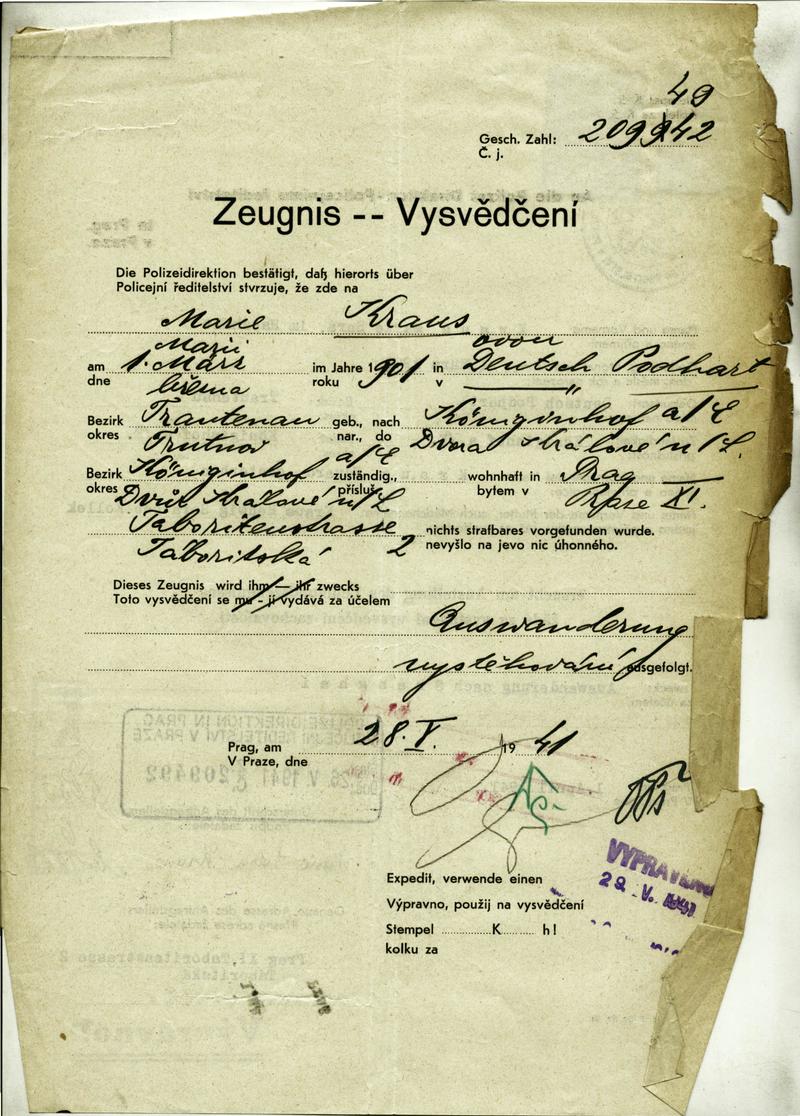 49
Gesch. Zahl: 209942
Č. j.
Zeugnis -- Vysvědčení
Die Polizeidirektion bestätigt, daß hierorts über
Policejní ředitelství stvrzuje, že zde na
Marie Kraus
Marii ovou
am 1. März im Jahre 1901 in Deutsch Podhart
dne března roku v "
Bezirk Trautenau geb., nach Königinhof a/E
okres Trutnov nar., do Dvora Králové n/L.
Bezirk Königinhof a/E zuständig., wohnhaft in Prag
okres Dvůr Králové n/L přísluš. bytem v Praze XI.
Taboritenstrasse nichts strafbares vorgefunden wurde.
Táboritská 2 nevyšlo na jevo nic úhonného.
Dieses Zeugnis wird ihm — ihr zwecks
Toto vysvědčení se mu - jí vydává za účelem
Auswanderung
vystěhování ausgefolgt.
Prag, am 28. V. 1941
V Praze, dne
Expedit, verwende einen
VYPRAVENO
29. V. 1941
Výpravno, použij na vysvědčení
Stempel K h!
kolku za